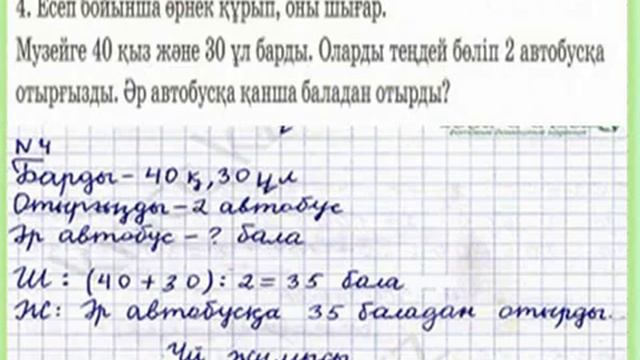 4. Есеп бойынша өрнек құрып, оны шығар.
Музейге 40 қыз және 30 ұл барды. Оларды теңдей бөліп 2 автобусқа
отырғызды. Әр автобусқа қанша баладан отырды?
N 4
Барды – 40 қ, 30 ұл
Отырғызды – 2 автобус
Әр автобус – ? бала
Ш: (40 + 30) : 2 = 35 бала
Ж: Әр автобусқа 35 баладан отырды.
Үй жұмысы